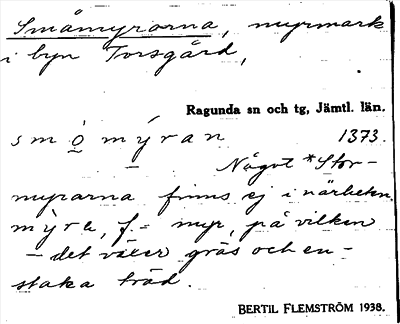 Småmyrorna, myrmark
i byn Torsgård,
Ragunda sn och tg, Jämtl. län.
smọ̈mýran 1373.
Något *Stor-
myrarna finns ej i närheten.
mỳra, f. = myr, på vilken
- det växer gräs och en-
staka träd.
BERTIL FLEMSTRÖM 1938.